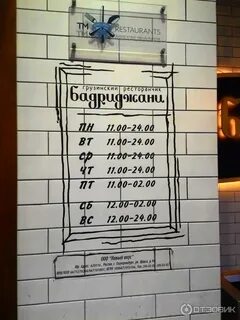 TM
RESTAURANTS
грузинский ресторанчик
бадриджани
ПН 11.00-24.00
ВТ 11.00-24.00
СР 11.00-24.00
ЧТ 11.00-24.00
ПТ 11.00-02.00
СБ 12.00-02.00
ВС 12.00-24.00
ООО "Новый
ОТЗОВИК